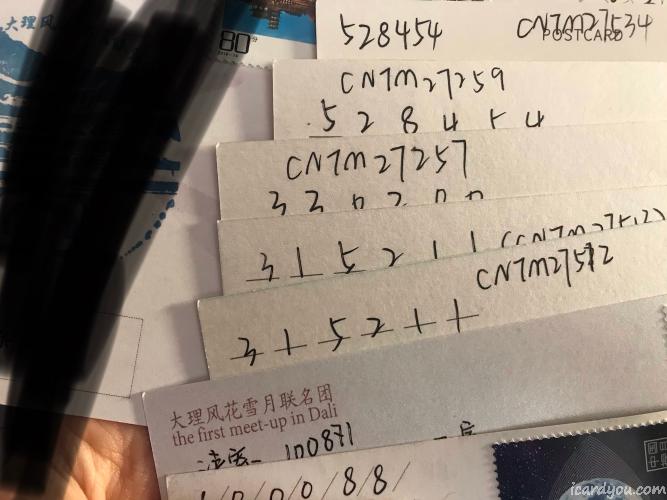 大理风
80分
528454
CN7M27534
POSTCARD
CN7M27259
528454
CN7M27257
330200
315211
(CN7M27512)
CN7M27512
315211
大理风花雪月联名团
the first meet-up in Dali
100871
icardyou.com